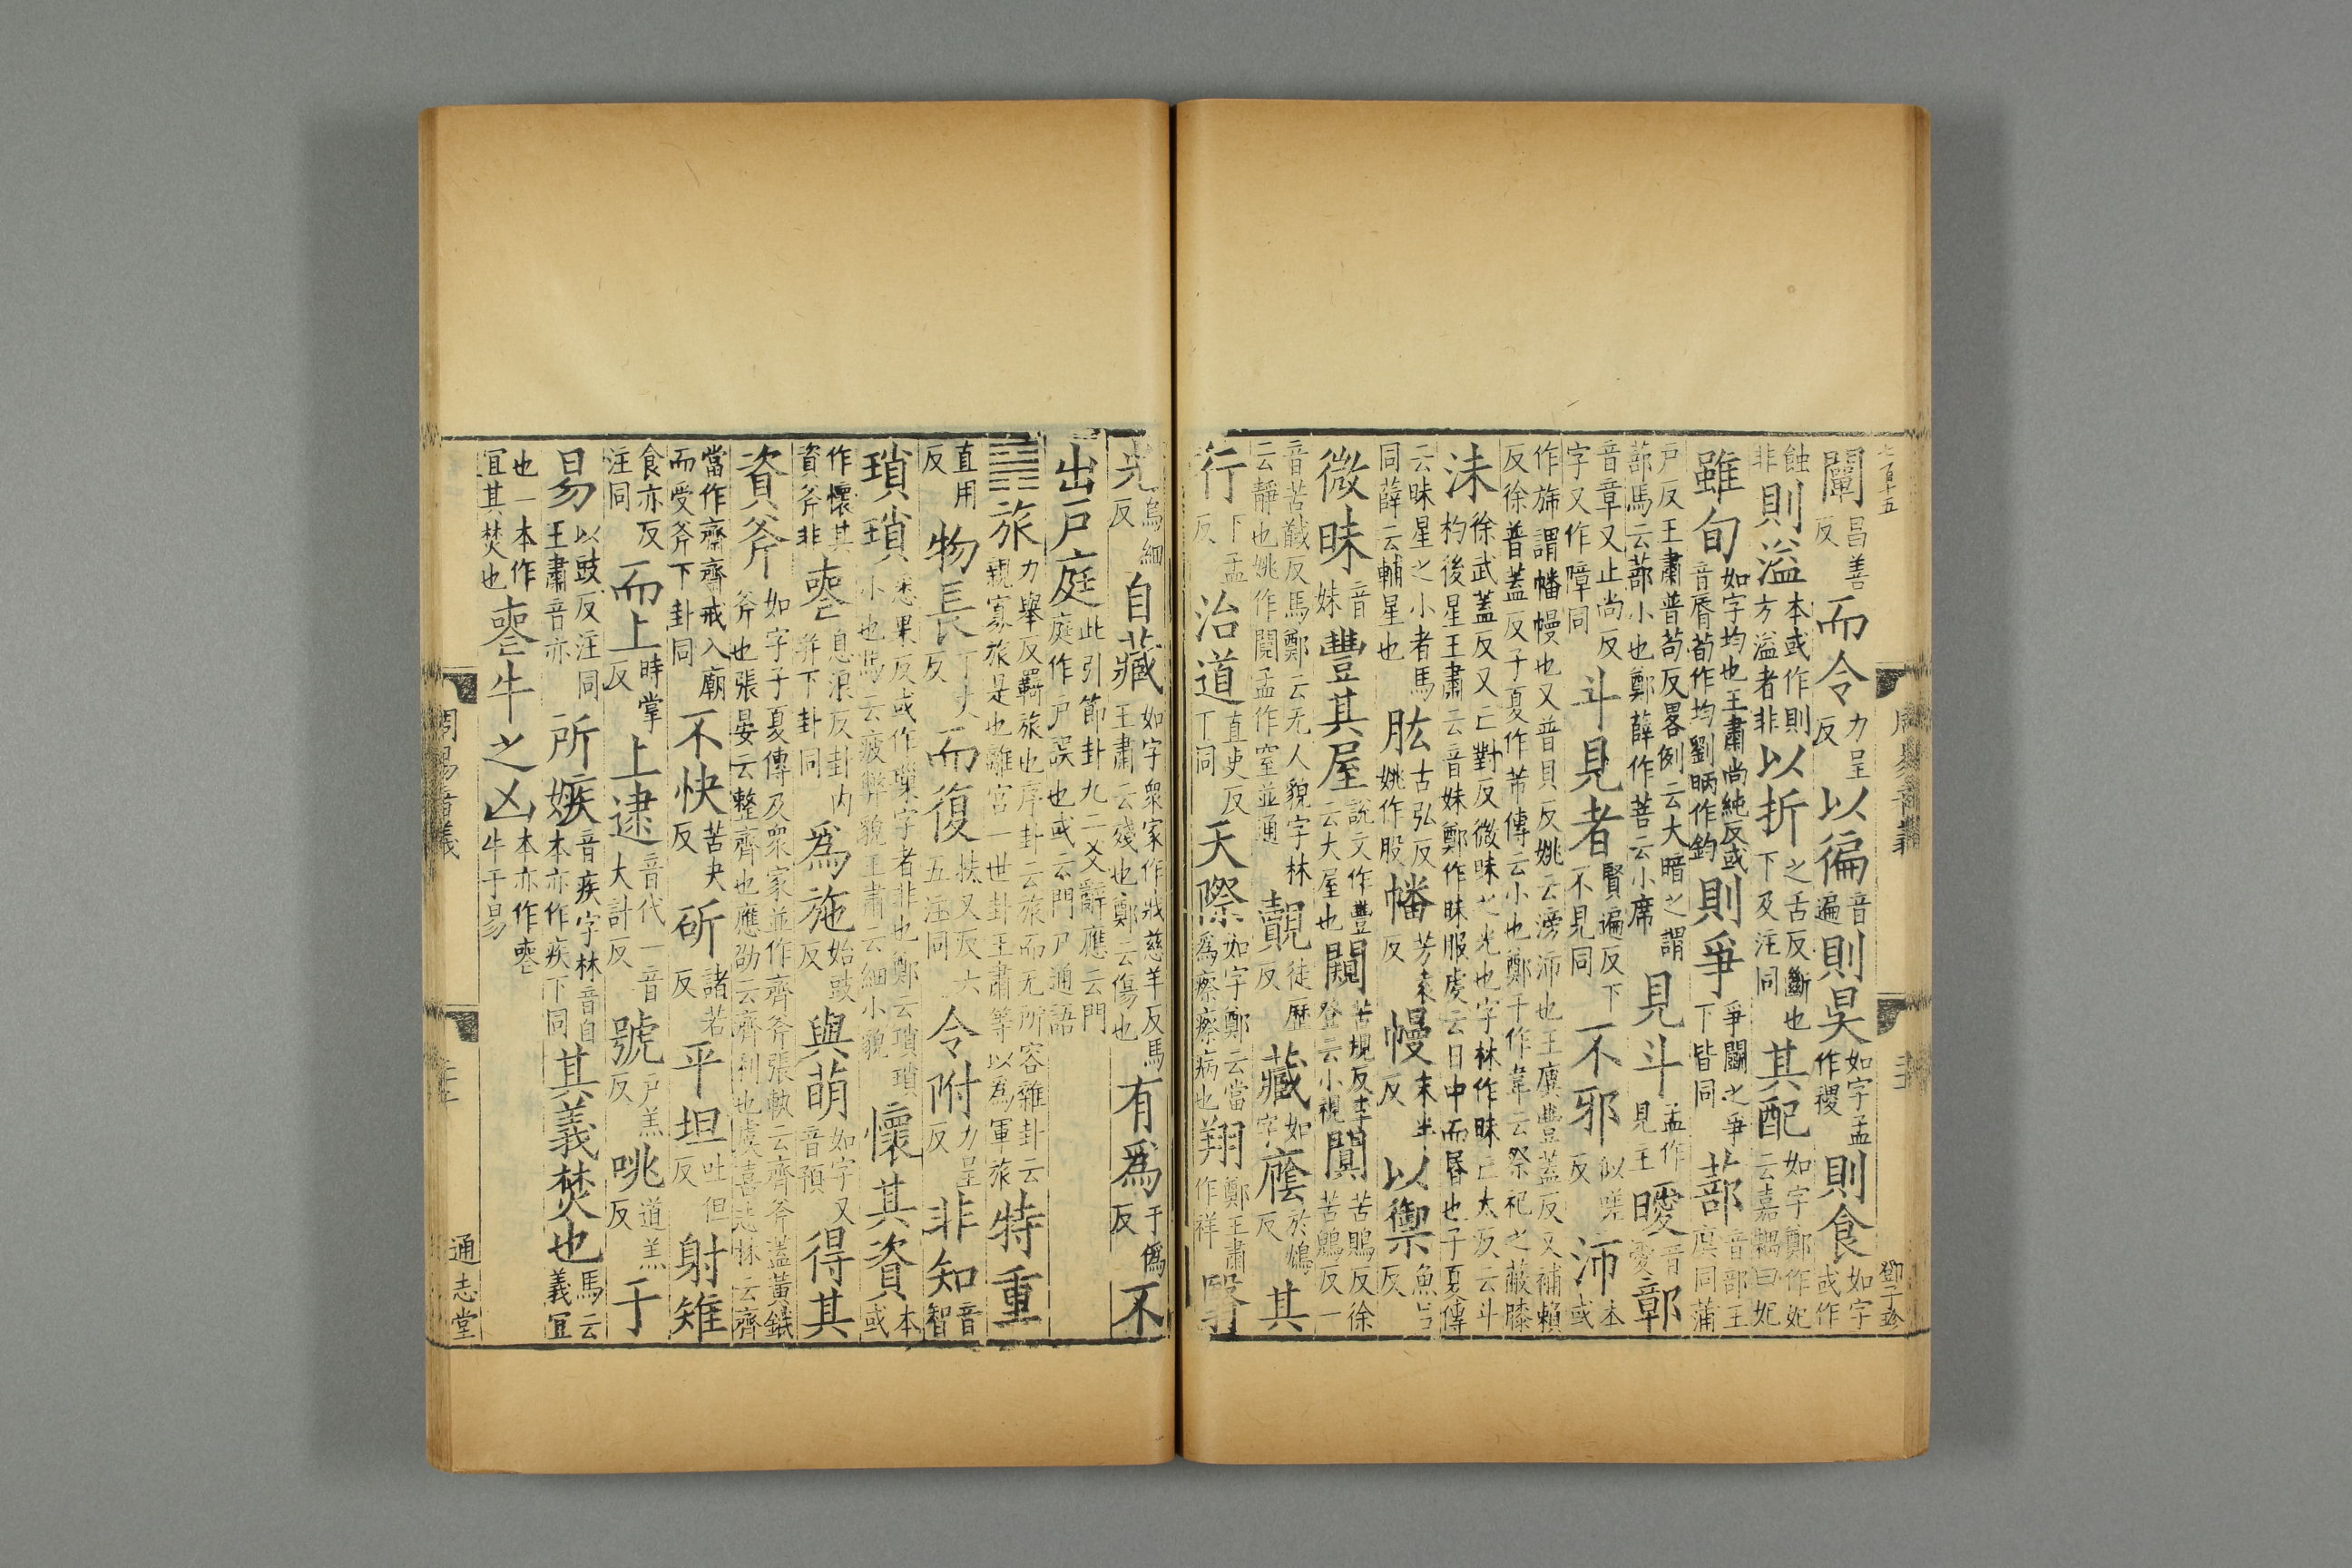 闡昌善反而令力呈反以徧音遍則昃如字孟作稷則食如字或作
蝕非則溢本或作則方溢者非以折之舌反斷也下及注同其配如字鄭作妃云嘉耦曰妃
雖旬如字均也王肅尚純反或音脣荀作均劉昞作鈞則爭爭鬭之爭下皆同蔀音部王廙同蒲
戶反王肅普苟反畧例云大暗之謂蔀馬云蔀小也鄭薛作菩云小席見斗孟作見主曖音愛鄣
音章又止尚反字又作障同斗見者賢遍反下不見同不邪似嗟反沛本或
作旆謂幡幔也又普貝反姚云滂沛也王廙豐蓋反又補賴反徐普蓋反子夏作芾傳云小也鄭干作韋云祭祀之蔽膝
沬徐武蓋反又亡對反微昧之光也字林作昧亡太反云斗杓後星王肅云音妹鄭作昧服虔云日中而昬也子夏傳
云昧星之小者馬同薛云輔星也肱古弘反姚作股幡芳袁反幔末半反以禦魚呂反
微昧音妹豐其屋說文作寷云大屋也闚苦規反李登云小視闃苦鵙反徐苦鶪反一
音苦馘反馬鄭云无人貌字林云靜也姚作䦧孟作窒並通覿徒歷反藏如字廕於鴆反其
行下孟反治道直吏反下同天際如字鄭云當爲瘵瘵病也翔鄭王肅作祥翳
光烏細反自藏如字衆家作戕慈羊反馬王肅云殘也鄭云傷也有爲于僞反不
出戶庭此引節卦九二爻辭應云門庭作戶誤也或云門戶通語
䷷旅力舉反羇旅也序卦云旅而无所容雜卦云親寡旅是也離宮一世卦王肅等以爲軍旅特重
直用反物長丁丈反而復扶又反六五注同令附力呈反非知音智
瑣瑣悉果反或作璅字者非也鄭云瑣瑣小也馬云疲弊貌王肅云細小貌懷其資本或
作懷其資斧非喪息浪反卦內并下卦同爲施始豉反與萌如字又音預得其
資斧如字子夏傳及衆家並作齊斧張軌云齊斧蓋黃鉞斧也張晏云整齊也應劭云齊利也虞喜志林云齊
當作齋齋戒入廟而受斧下卦同不快苦夬反斫諸若反平坦吐但反射雉
食亦反注同而上時掌反上逮音代一音大計反號戶羔反咷道羔反于
易以豉反注同王肅音亦所嫉音疾字林音自本亦作疾下同其義焚也馬云義宜
也一本作宜其焚也喪牛之凶本亦作喪牛于易
周易音義
通志堂